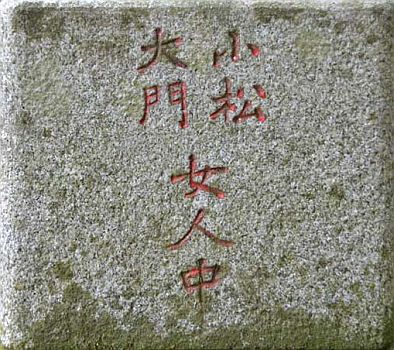 小松
大門
女人中